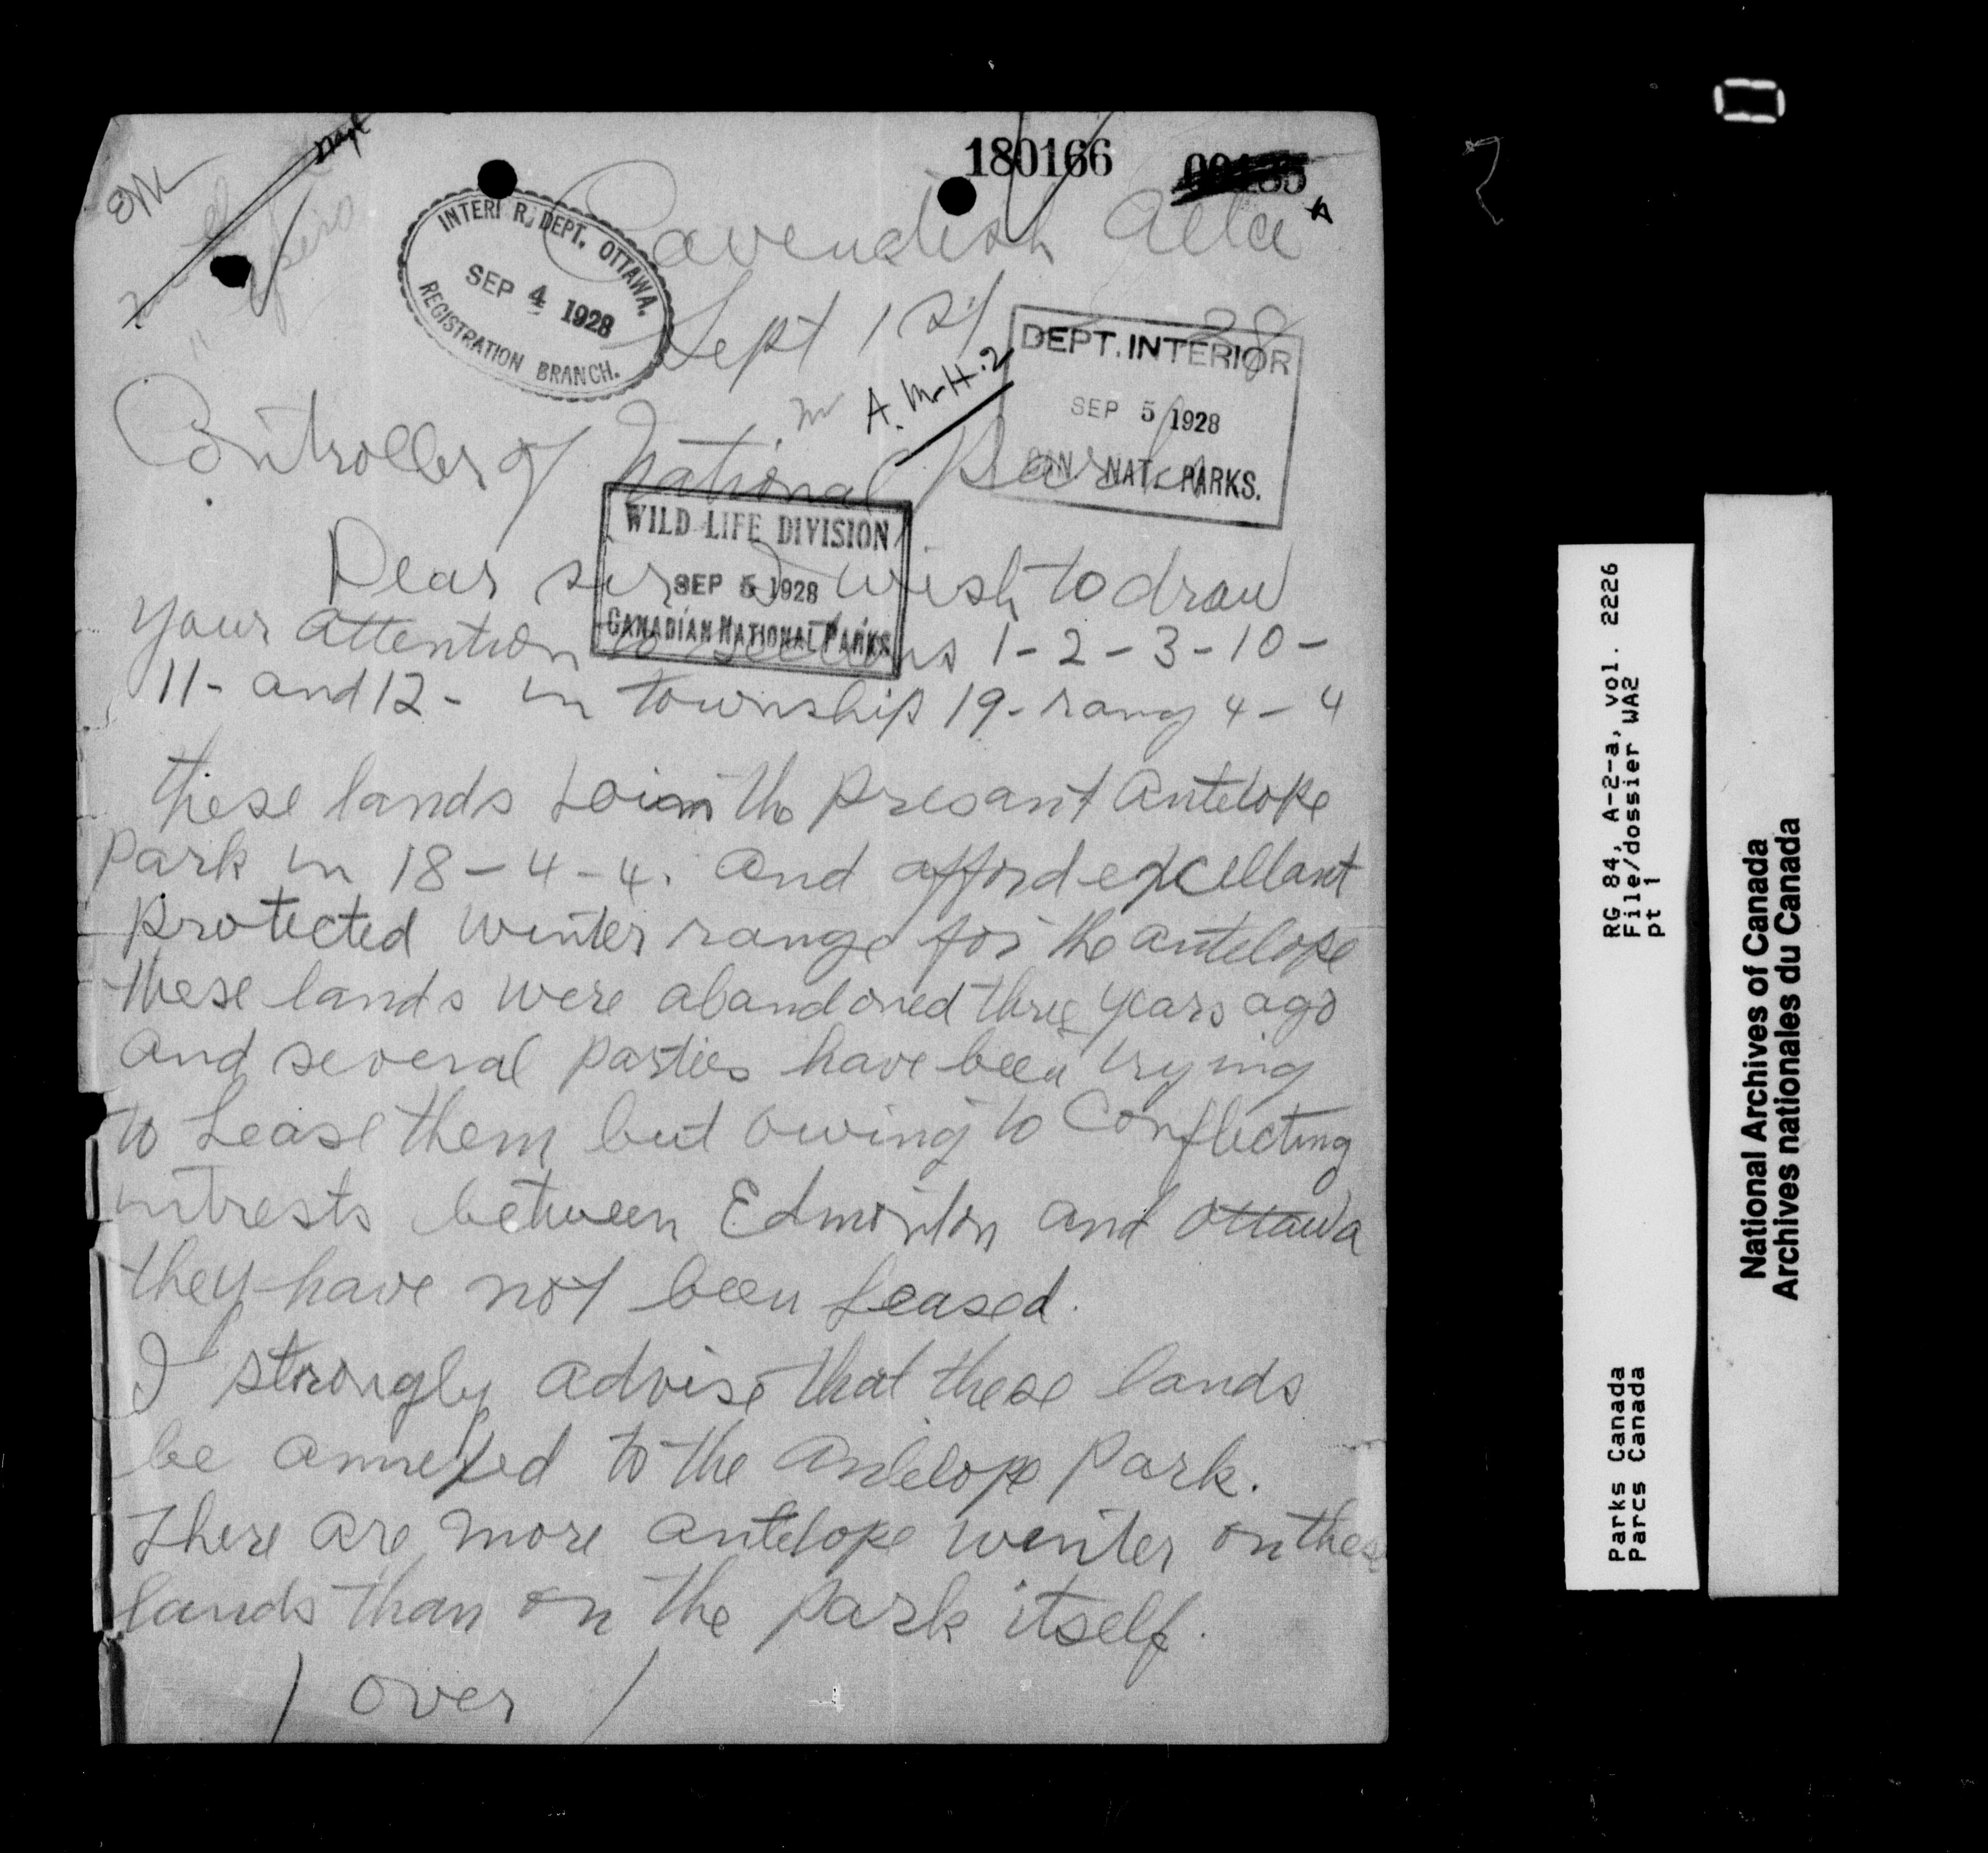 180166
Cavendish Alta
INTERI R, DEPT. OTTAWA.
SEP 4 1928
REGISTRATION BRANCH.
Sept 1st 28
DEPT. INTERIOR
SEP 5 1928
CAN. NAT. PARKS.
A.M.H.2
Controller of National Parks
WILD LIFE DIVISION
SEP 5 1928
CANADIAN NATIONAL PARKS
Dear sir I wish to draw
your attention to sections 1-2-3-10-
11- and 12- in township 19- rang 4-4
these lands Join the presant antelope
park in 18-4-4. and afford excellant
protected winter range for the antelope
these lands were abandoned three years ago
and several parties have been trying
to Lease them but owing to Conflicting
intrests between Edmonton and Ottawa
they have not been Leased.
I strongly advise that these lands
be annexed to the antelope Park.
There are more antelope winter on these
lands than on the park itself.
/ over /
RG 84, A-2-a, vol. 2226
File/dossier WA2
pt 1
Parks Canada
Parcs Canada
National Archives of Canada
Archives nationales du Canada